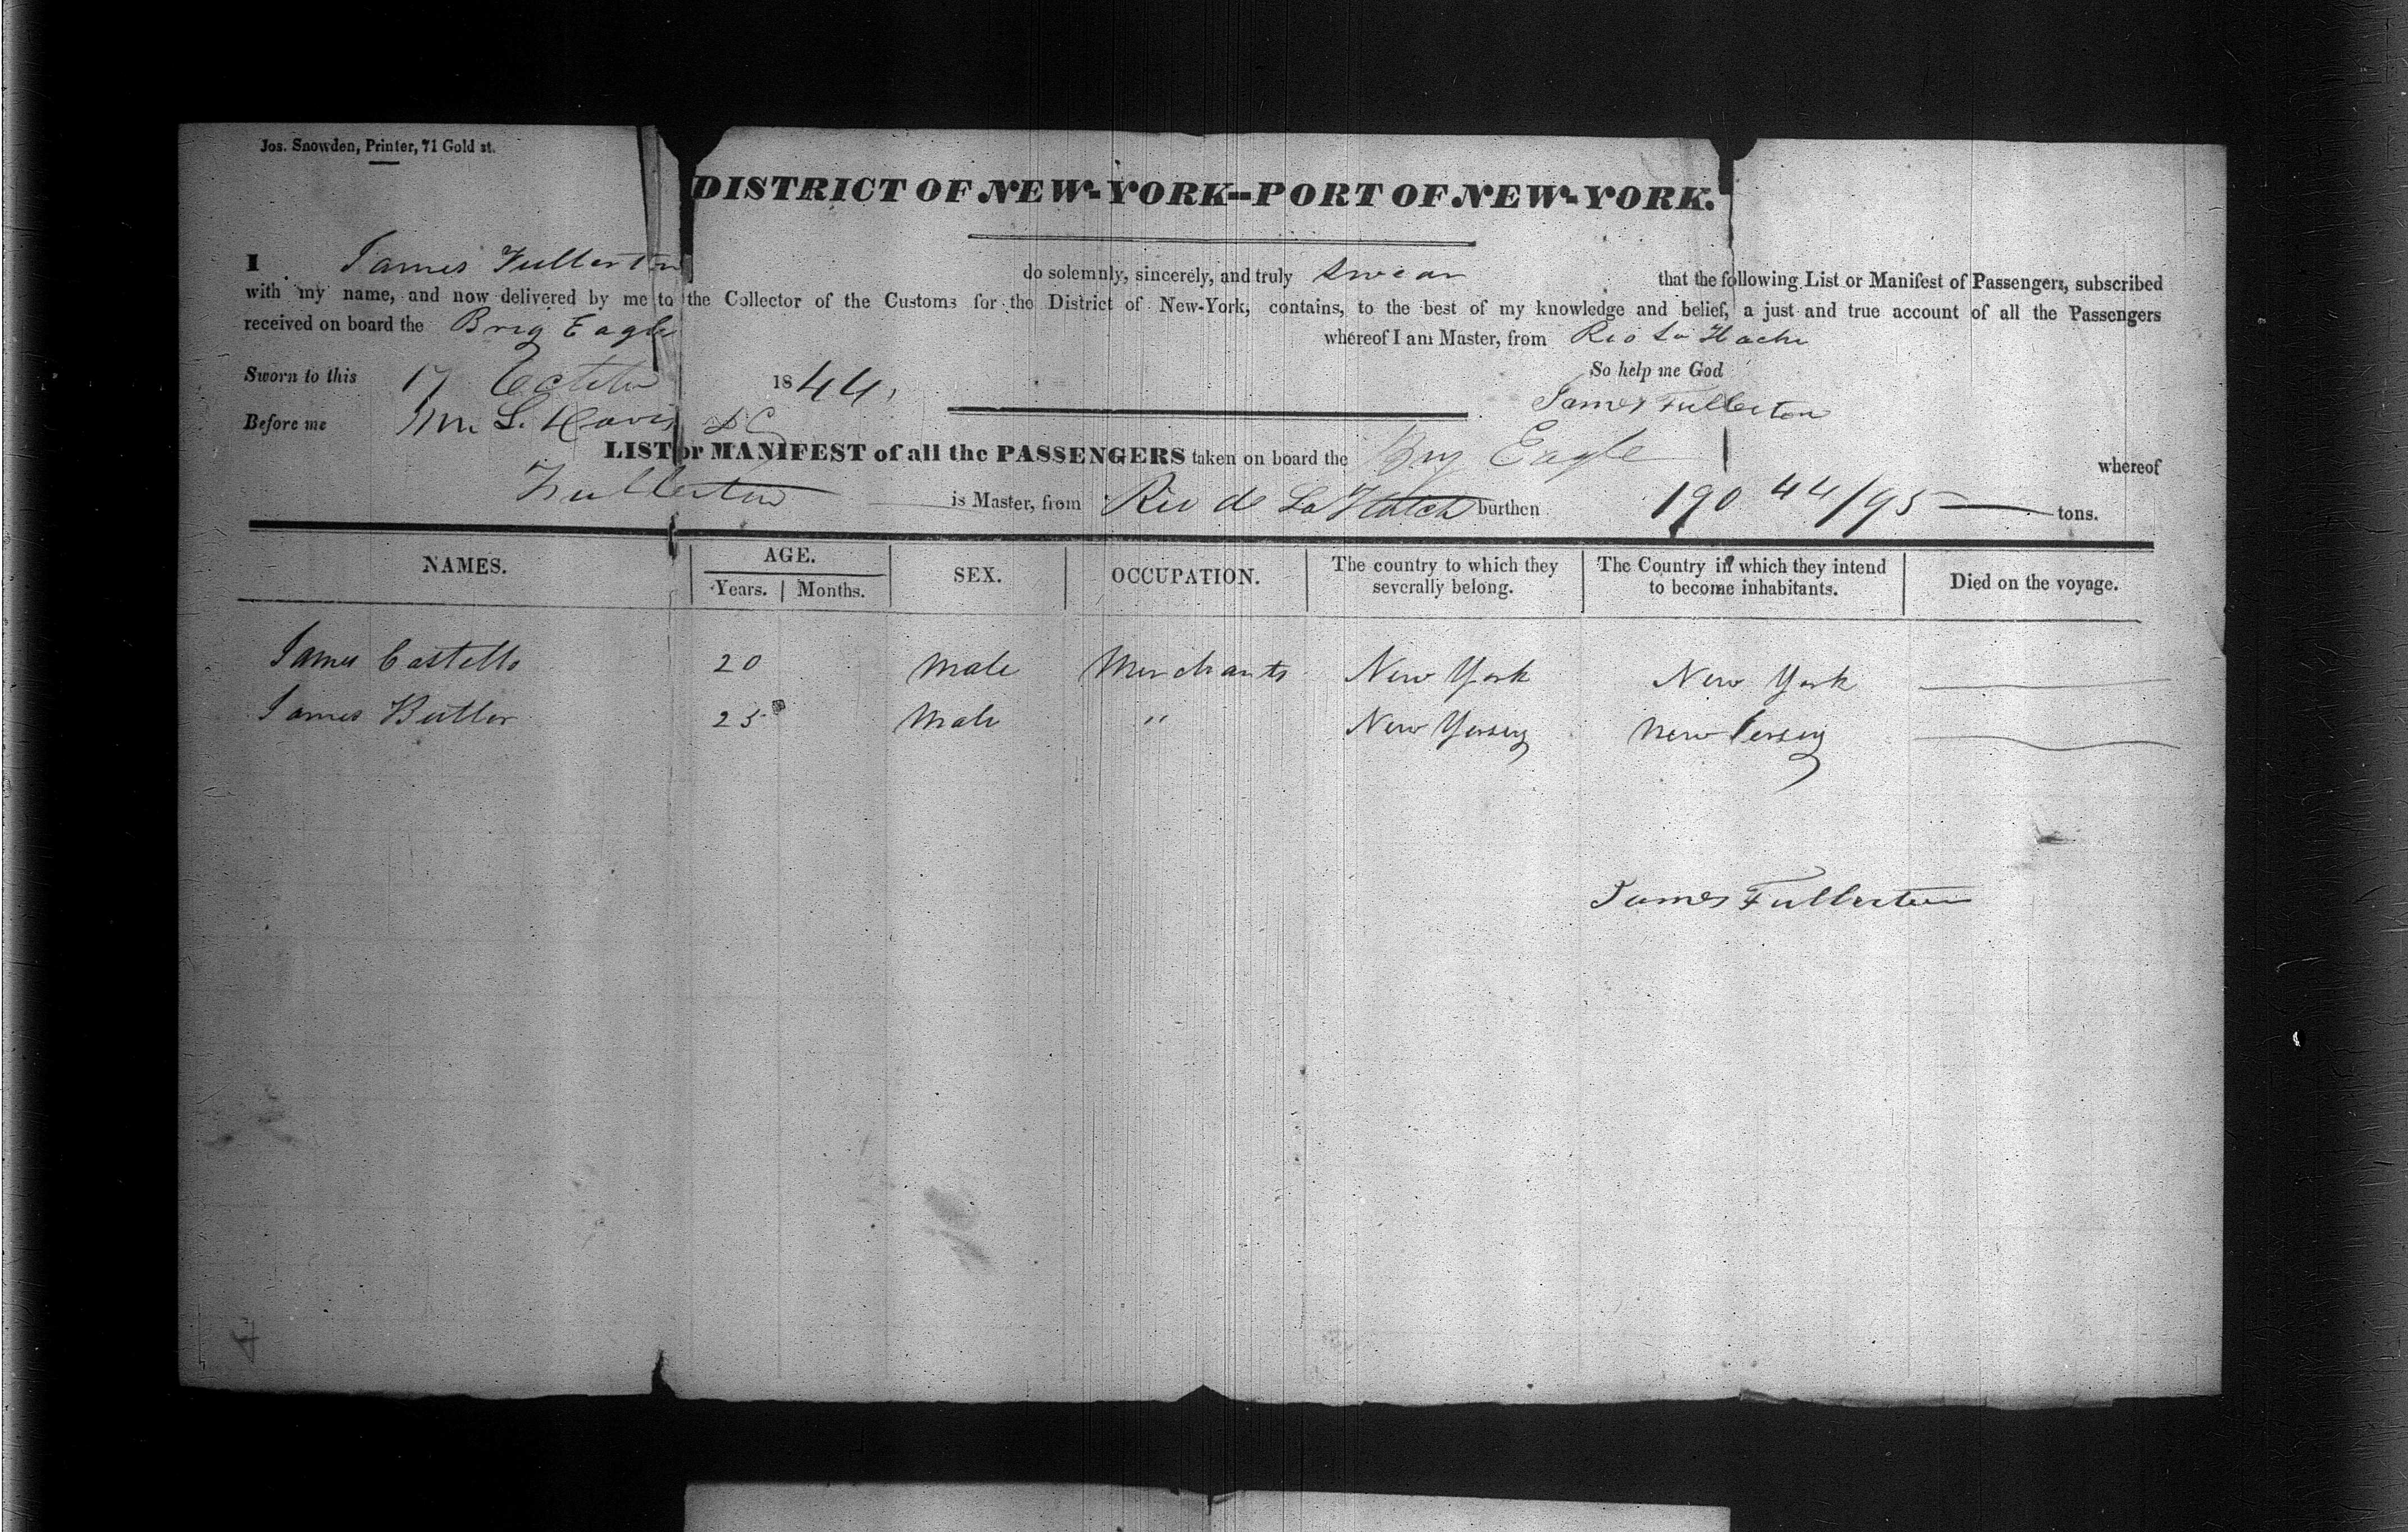 Jos. Snowden, Printer, 71 Gold st.
DISTRICT OF NEW-YORK--PORT OF NEW-YORK.
I James Fullerton do solemnly, sincerely, and truly swear that the following List or Manifest of Passengers, subscribed
with my name, and now delivered by me to the Collector of the Customs for the District of New-York, contains, to the best of my knowledge and belief, a just and true account of all the Passengers
received on board the Brig Eagle whereof I am Master, from Rio La Hache
Sworn to this 17 1844, So help me God
James Fullerton
Before me M. L. Davis DC
LIST or MANIFEST of all the PASSENGERS taken on board the Brig Eagle whereof
Fullerton is Master, from Rio de La Hatch burthen 190 44/95 tons.
NAMES. AGE. SEX. OCCUPATION. The country to which they severally belong. The Country in which they intend to become inhabitants. Died on the voyage.
Years. Months.
James Costello 20 Male Merchants New York New York
James Butler 25 Male " New Yersey New Jersey
James Fullerton